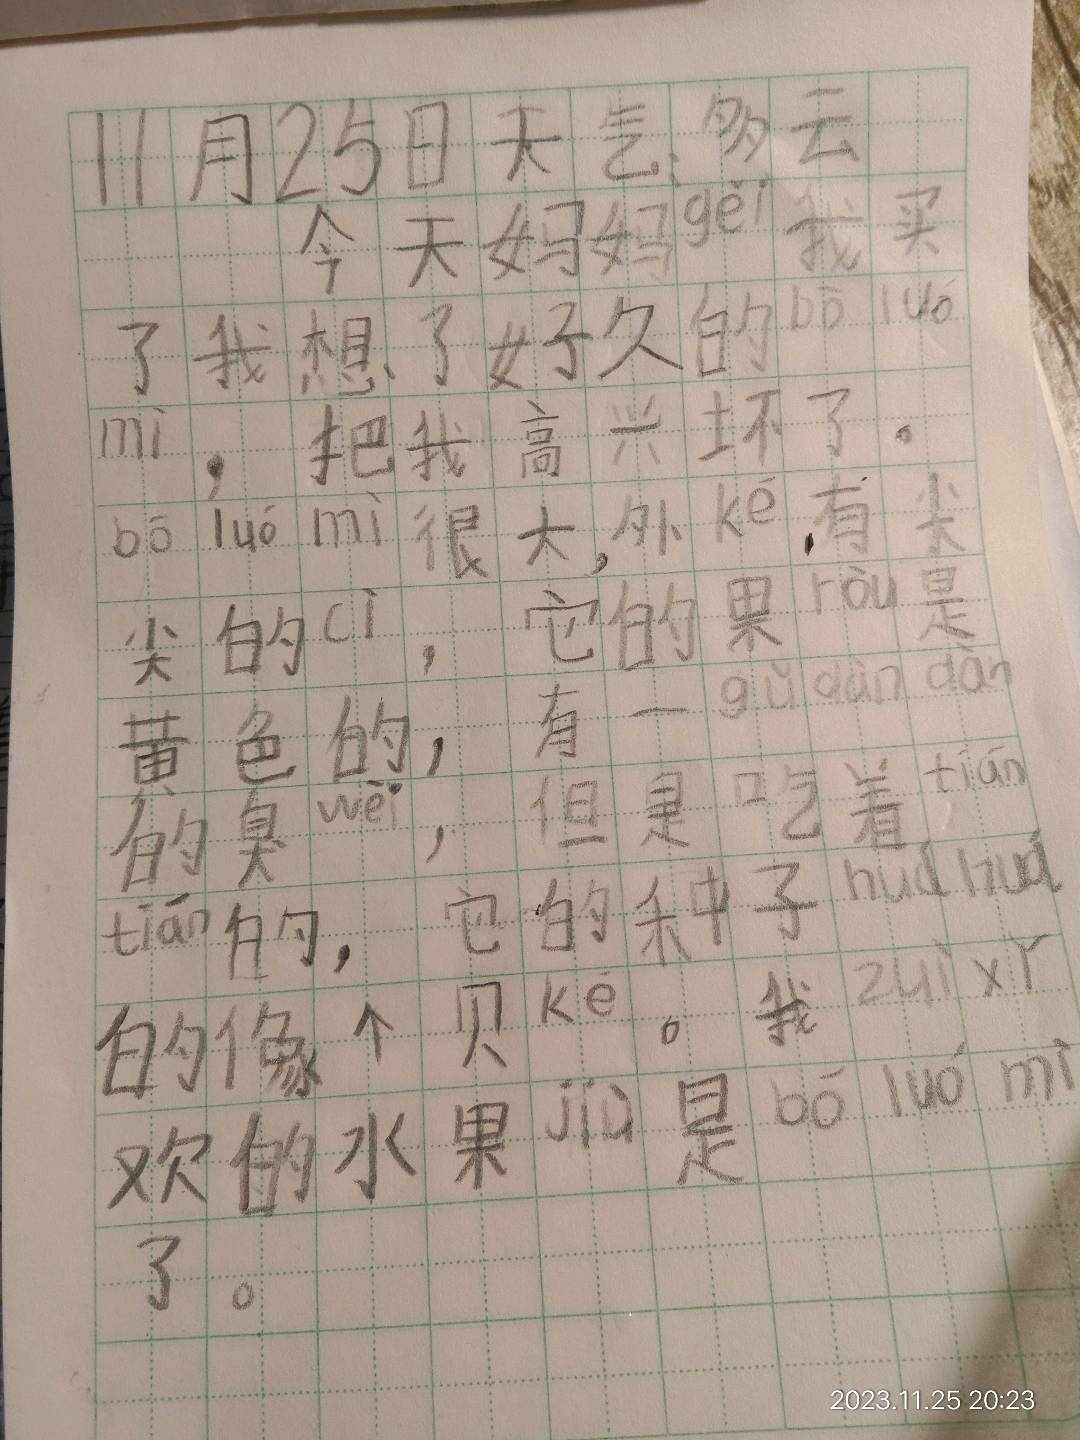 11月25日天气:多云
今天妈妈gěi我买
了我想了好久的bō luó
mì，把我高兴坏了。
bō luó mì很大，外ké，有尖
尖的cì，它的果ròu是
黄色的，有一gǔ dàn dàn
的臭wèi，但是吃着tián
tián的，它的种子huá huá
的像个贝ké。我zuì xǐ
欢的水果jiù是bō luó mì
了。
2023.11.25 20:23